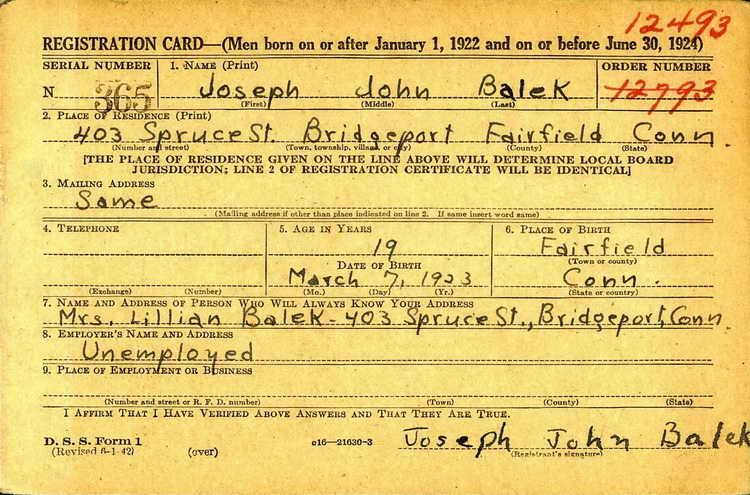 12493
REGISTRATION CARD—(Men born on or after January 1, 1922 and on or before June 30, 1924)
SERIAL NUMBER 1. NAME (Print) ORDER NUMBER
N 365 Joseph John Balek 12793
(First) (Middle) (Last)
2. PLACE OF RESIDENCE (Print)
403 Spruce St. Bridgeport Fairfield Conn.
(Number and street) (Town, township, village, or city) (County) (State)
[THE PLACE OF RESIDENCE GIVEN ON THE LINE ABOVE WILL DETERMINE LOCAL BOARD
JURISDICTION; LINE 2 OF REGISTRATION CERTIFICATE WILL BE IDENTICAL]
3. MAILING ADDRESS
Same
(Mailing address if other than place indicated on line 2. If same insert word same)
4. TELEPHONE 5. AGE IN YEARS 6. PLACE OF BIRTH
19 Fairfield
DATE OF BIRTH (Town or county)
March 7, 1923 Conn.
(Exchange) (Number) (Mo.) (Day) (Yr.) (State or country)
7. NAME AND ADDRESS OF PERSON WHO WILL ALWAYS KNOW YOUR ADDRESS
Mrs. Lillian Balek - 403 Spruce St., Bridgeport, Conn.
8. EMPLOYER'S NAME AND ADDRESS
Unemployed
9. PLACE OF EMPLOYMENT OR BUSINESS
(Number and street or R. F. D. number) (Town) (County) (State)
I AFFIRM THAT I HAVE VERIFIED ABOVE ANSWERS AND THAT THEY ARE TRUE.
D. S. S. Form 1 c16—21630-3 Joseph John Balek
(Revised 6-1-42) (over) (Registrant's signature)